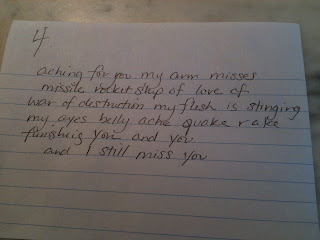 4
aching for you my arm misses
missile rocket ship of love of
war of destruction my flesh is stinging
my ayes belly ache quake rake
finishing you and you
and I still miss you